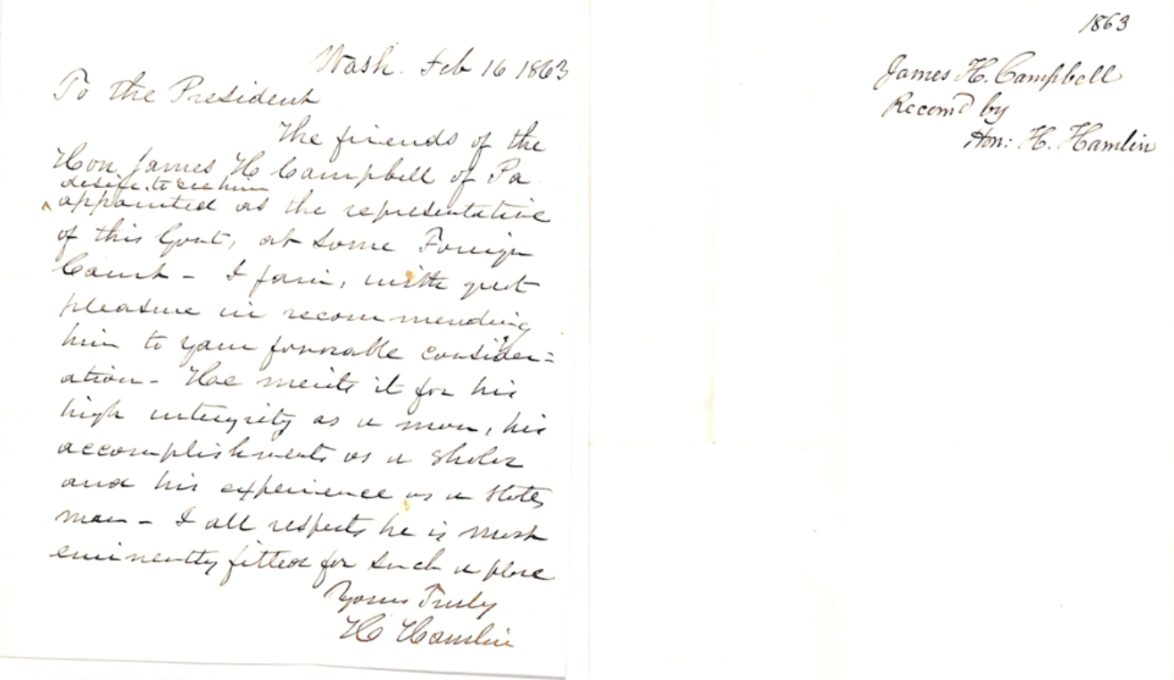 Wash. Feb 16 1863
To the President
The friends of the
Hon. James H Campbell of Pa.
desire to see him
^ appointed as the representative
of this Govt, at some Foreign
Court - I join, with great
pleasure in recommending
him to your favorable consider=
ation - He merits it for his
high integrity as a man, his
accomplishments as a sholar
and his experience as a states
man - I all respects he is most
eminently fitted for such a place
Yours Truly
H Hamlin
1863
James H. Campbell
Recomd by
Hon: H. Hamlin